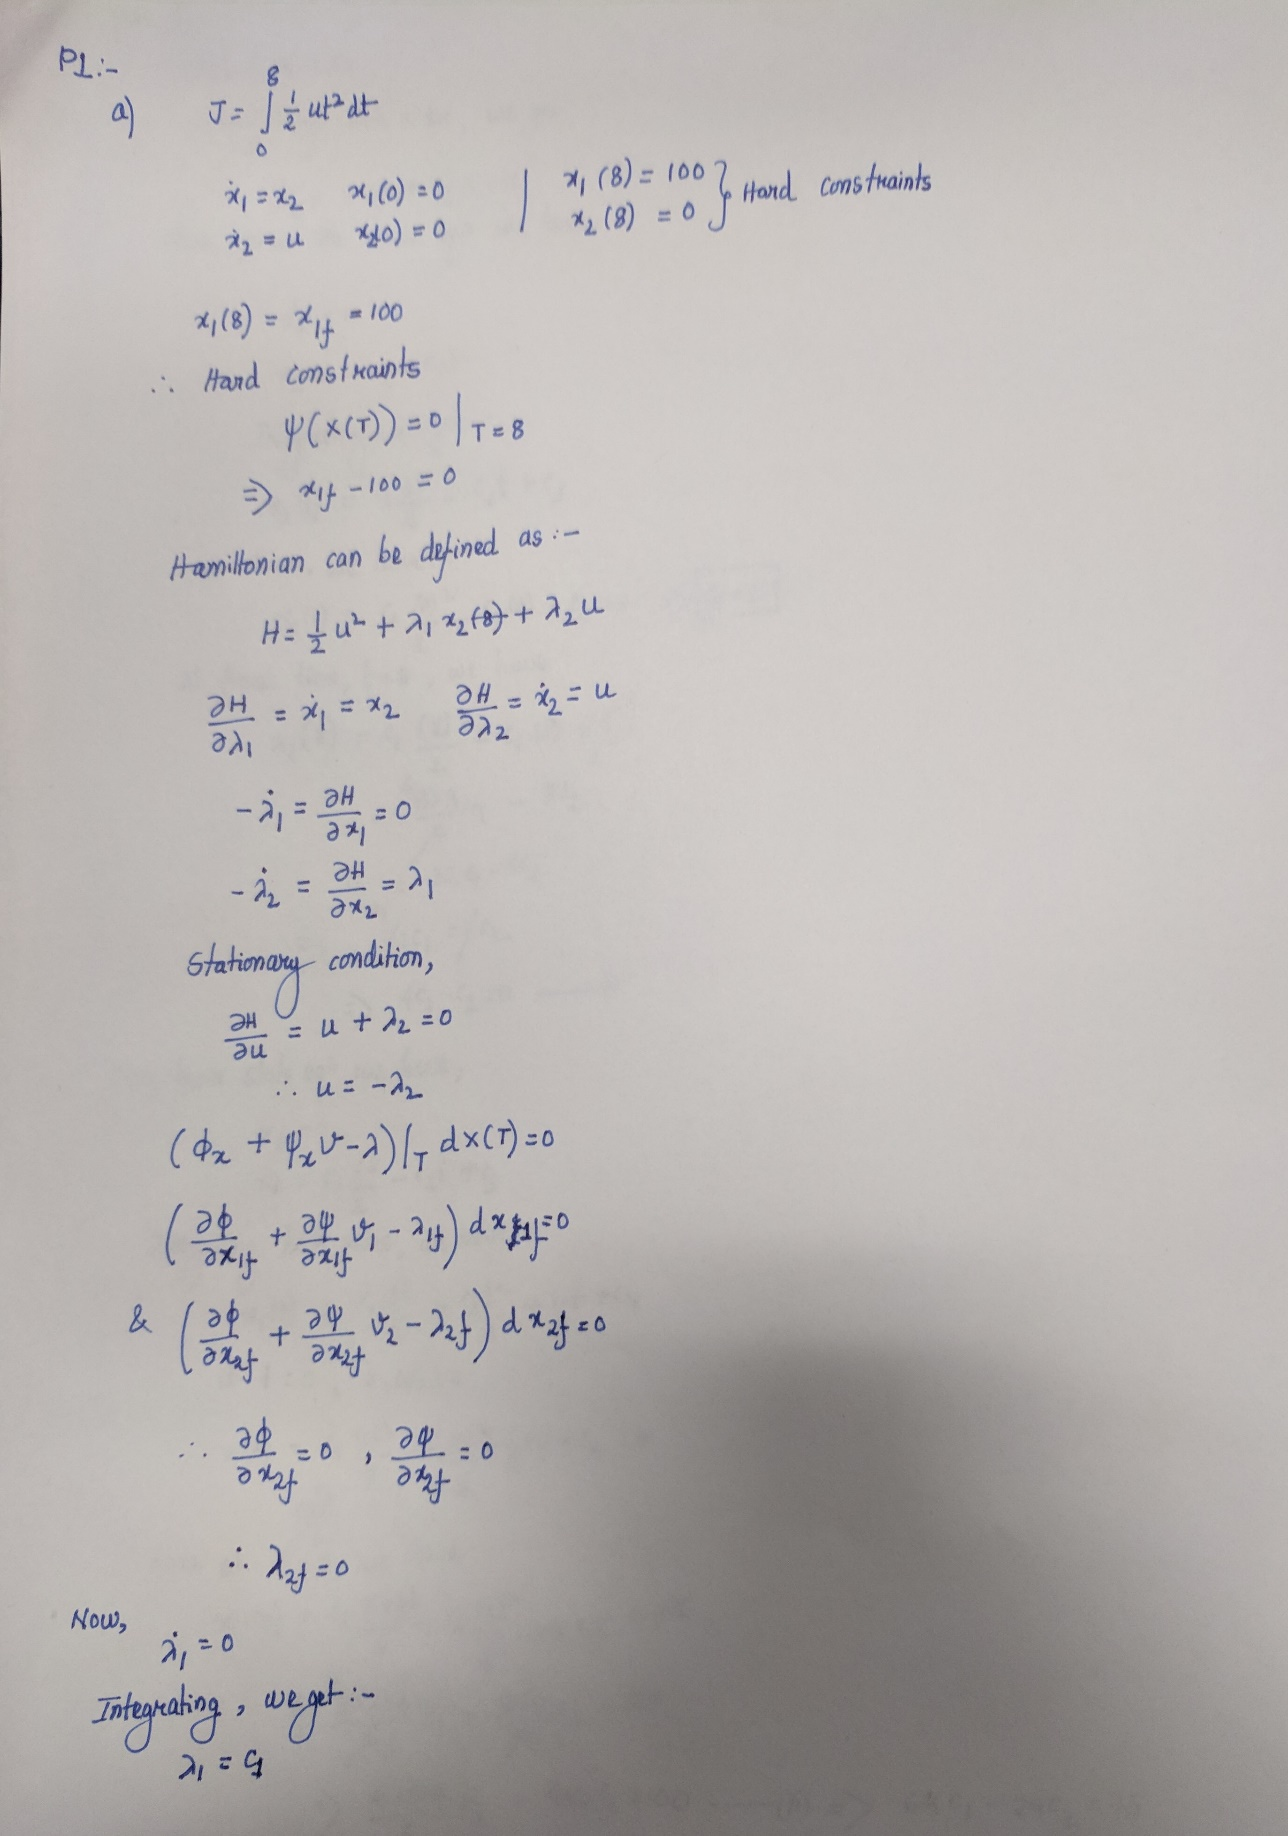 P1:-
a) J = ∫₀⁸ 1/2 ut² dt
ẋ₁ = x₂ x₁(0) = 0 | x₁(8) = 100 } Hard constraints
ẋ₂ = u x₂(0) = 0 | x₂(8) = 0
x₁(8) = x₁f = 100
∴ Hard constraints
ψ(x(T)) = 0 | T = 8
⇒ x₁f - 100 = 0
Hamiltonian can be defined as :-
H = 1/2 u² + λ₁ x₂ + λ₂ u
∂H/∂λ₁ = ẋ₁ = x₂ ∂H/∂λ₂ = ẋ₂ = u
-λ̇₁ = ∂H/∂x₁ = 0
-λ̇₂ = ∂H/∂x₂ = λ₁
Stationary condition,
∂H/∂u = u + λ₂ = 0
∴ u = -λ₂
(ϕₓ + ψₓ v - λ)|_T dx(T) = 0
(∂ϕ/∂x₁f + ∂ψ/∂x₁f v₁ - λ₁f) dx₁f = 0
& (∂ϕ/∂x₂f + ∂ψ/∂x₂f v₂ - λ₂f) dx₂f = 0
∴ ∂ϕ/∂x₂f = 0 , ∂ψ/∂x₂f = 0
∴ λ₂f = 0
Now,
λ̇₁ = 0
Integrating, we get :-
λ₁ = c₁